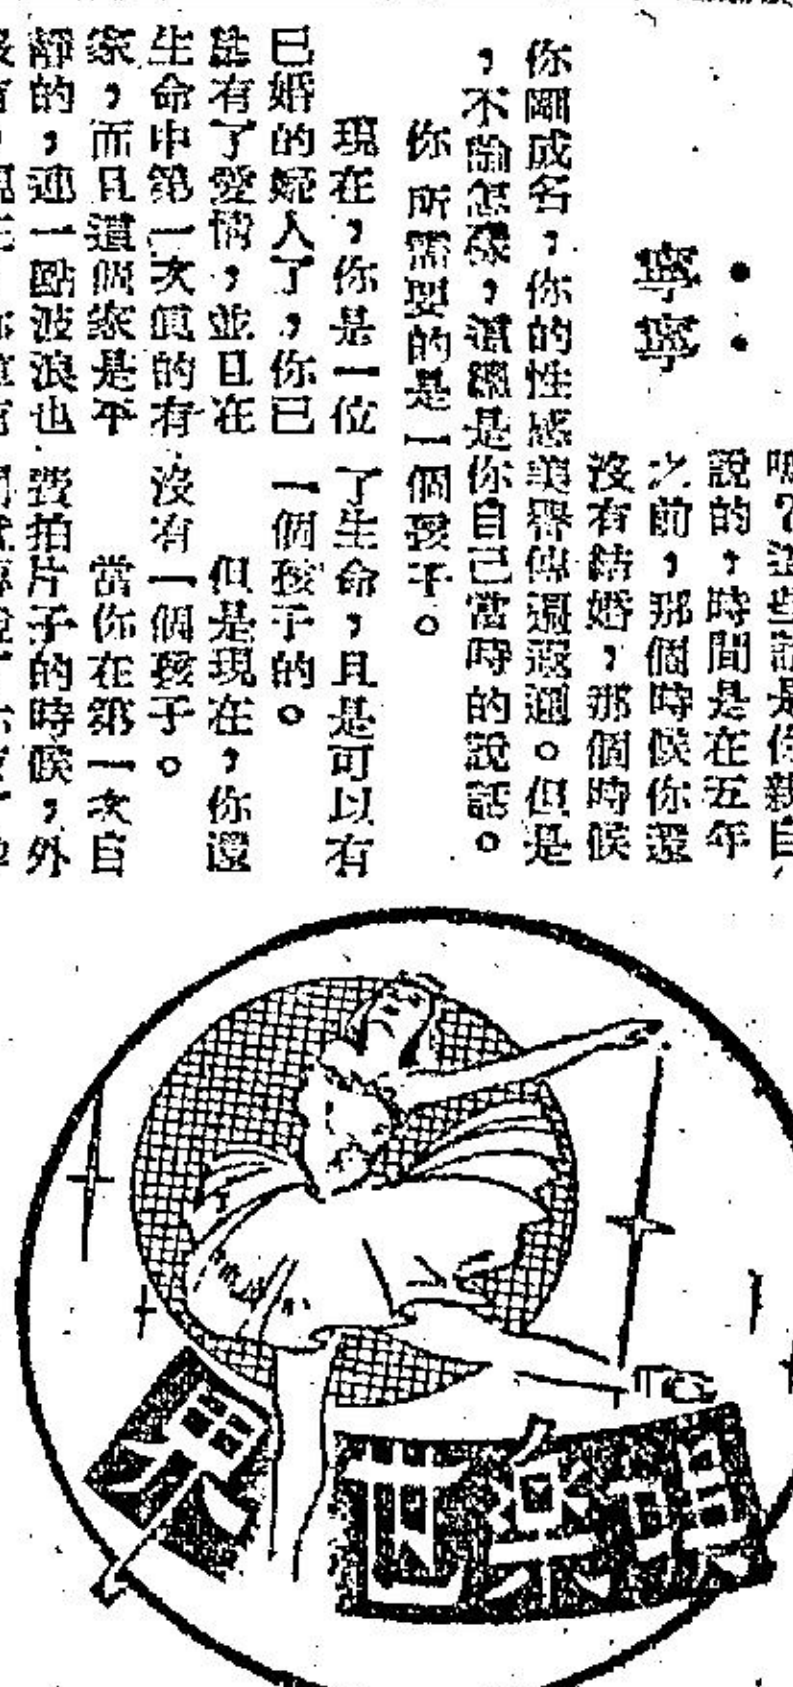 嗎？這些話是你親自
說的，時間是在五年
之前，那個時候你還
沒有結婚，那個時候
寧寧
你剛成名，你的性感美譽傳遍遐邇。但是
，不論怎樣，這總是你自己當時的說話。
你所需要的是一個孩子。
現在，你是一位
已婚的婦人了，你已
能有了愛情，並且在
生命中第一次真的有
家，而且這個家是平
靜的，連一點波浪也
了生命，且是可以有
一個孩子的。
但是現在，你還
沒有一個孩子。
當你在第一次自
費拍片子的時候，外
娛樂世界